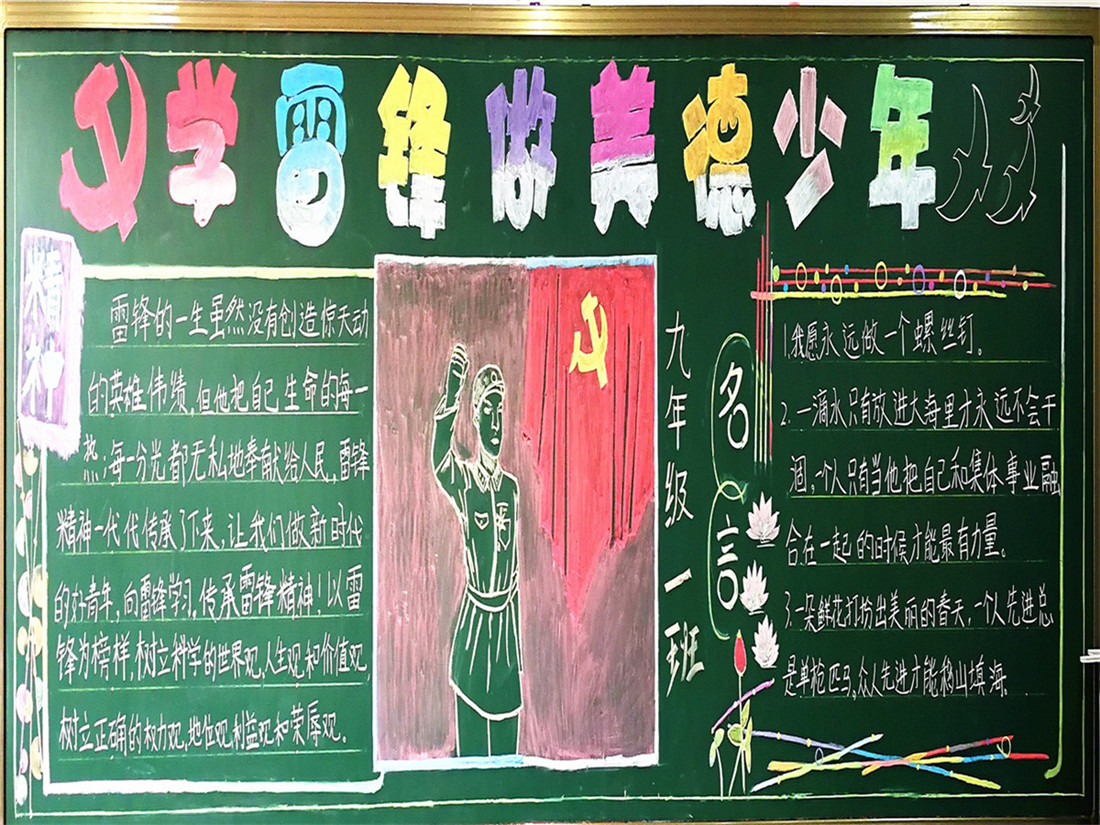 学雷锋做美德少年
精神
雷锋的一生虽然没有创造惊天动
的英雄伟绩，但他把自己生命的每一
热；每一分光都无私地奉献给人民，雷锋
精神一代代传承了下来，让我们做新时代
的好青年，向雷锋学习，传承雷锋精神！以雷
锋为榜样，树立科学的世界观，人生观和价值观，
树立正确的权力观，地位观，利益观和荣辱观。
九年级一班
名言
1.我愿永远做一个螺丝钉。
2.一滴水只有放进大海里才永远不会干
涸，一个人只有当他把自己和集体事业融
合在一起的时候才能最有力量。
3.一朵鲜花打扮不出美丽的春天，一个人先进总
是单枪匹马，众人先进才能移山填海。